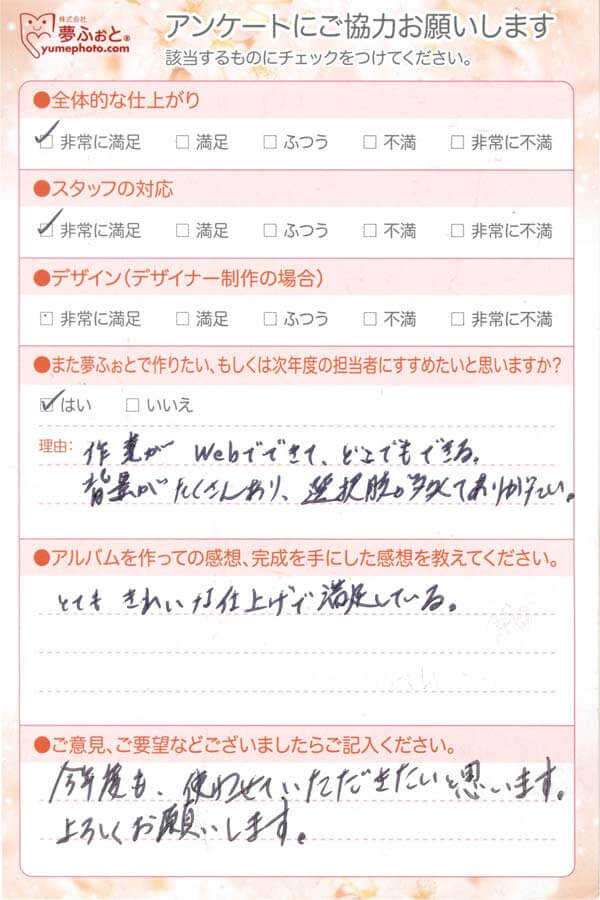 株式会社
夢ふぉと®
yumephoto.com
アンケートにご協力お願いします
該当するものにチェックをつけてください。
●全体的な仕上がり
☑ 非常に満足 □ 満足 □ ふつう □ 不満 □ 非常に不満
●スタッフの対応
☑ 非常に満足 □ 満足 □ ふつう □ 不満 □ 非常に不満
●デザイン(デザイナー制作の場合)
□ 非常に満足 □ 満足 □ ふつう □ 不満 □ 非常に不満
●また夢ふぉとで作りたい、もしくは次年度の担当者にすすめたいと思いますか?
☑ はい □ いいえ
理由: 作業が Webでできて、どこでもできる。
背景がたくさんあり、選択肢が多くてありがたい。
●アルバムを作っての感想、完成を手にした感想を教えてください。
とても きれいな仕上げで満足している。
●ご意見、ご要望などございましたらご記入ください。
今年度も、使わせていただきたいと思います。
よろしくお願いします。